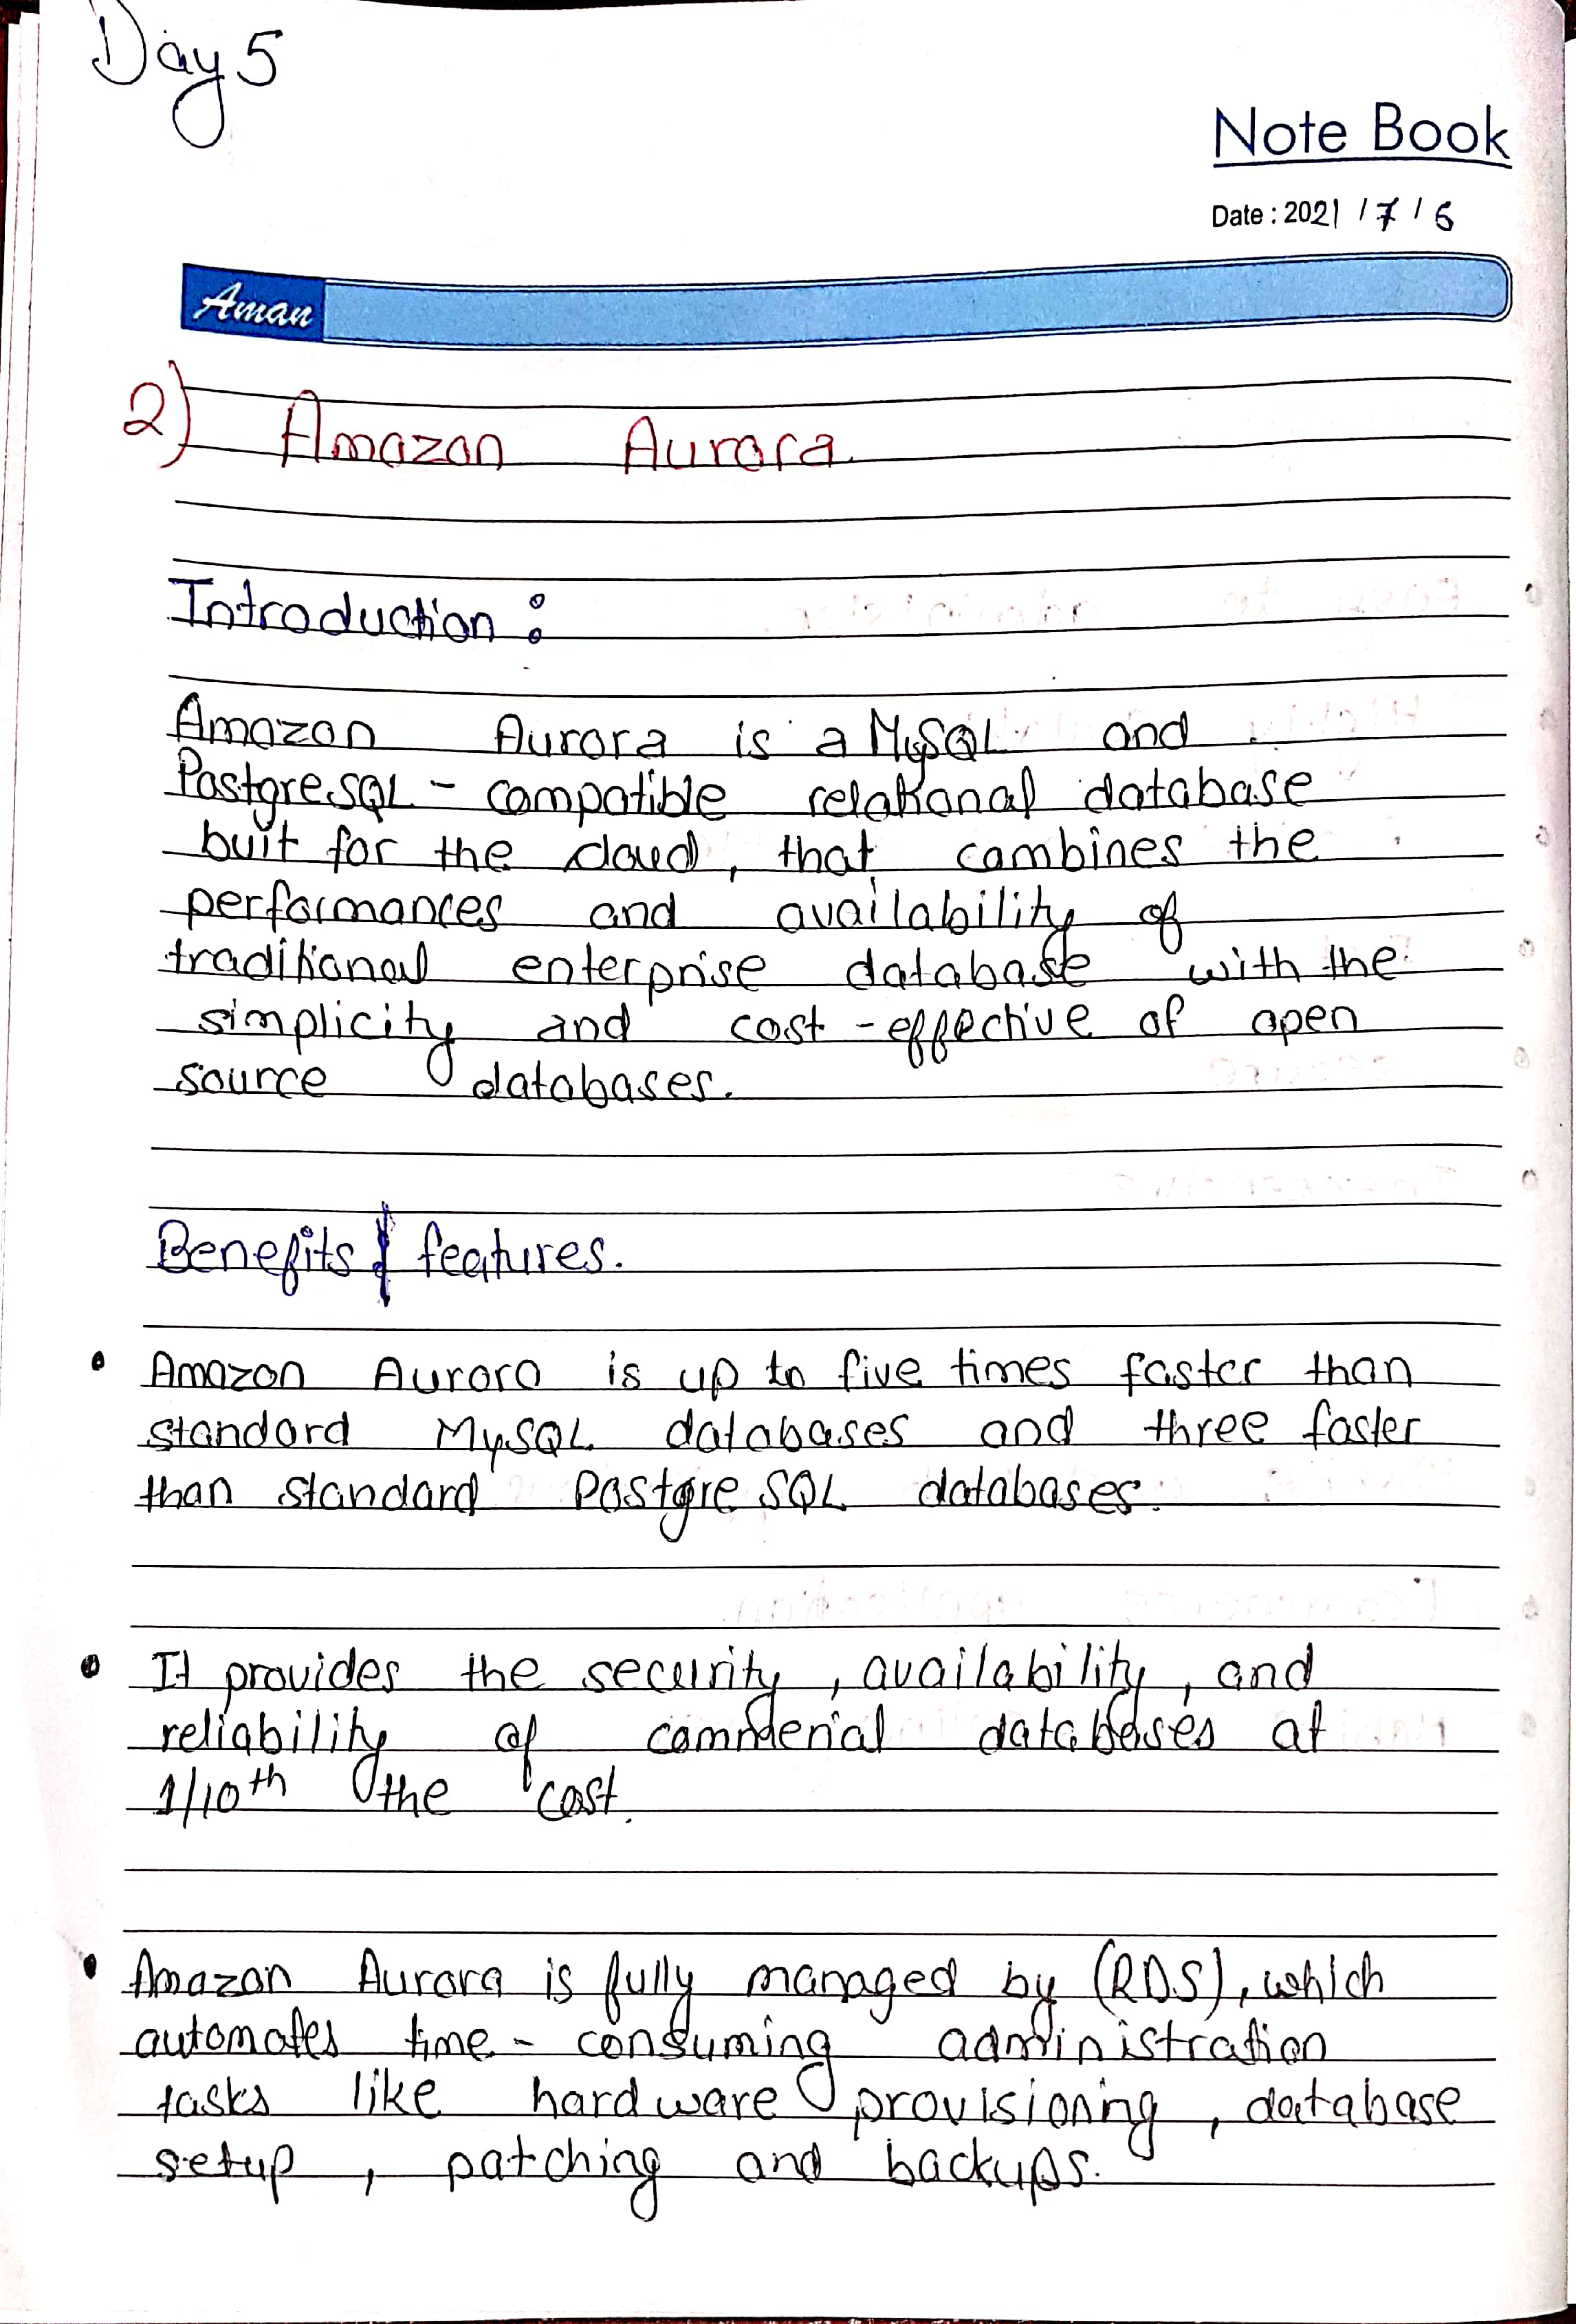 Day 5
Note Book
Date : 2021 / 7 / 6
Aman
2) Amazon Aurora.
Introduction :
Amazon Aurora is a MySQL and
PostgreSQL - compatible relational database
buit for the cloud, that combines the
performances and availability of
traditional enterprise database with the
simplicity and cost-effective of open
source databases.
Benefits & features.
• Amazon Aurora is up to five times faster than
standard MySQL databases and three faster
than standard PostgreSQL databases.
• It provides the security, availability, and
reliability of commerial databases at
1/10th the cost.
• Amazon Aurora is fully managed by (RDS), which
automates time-consuming administration
tasks like hardware provisioning, database
setup, patching and backups.